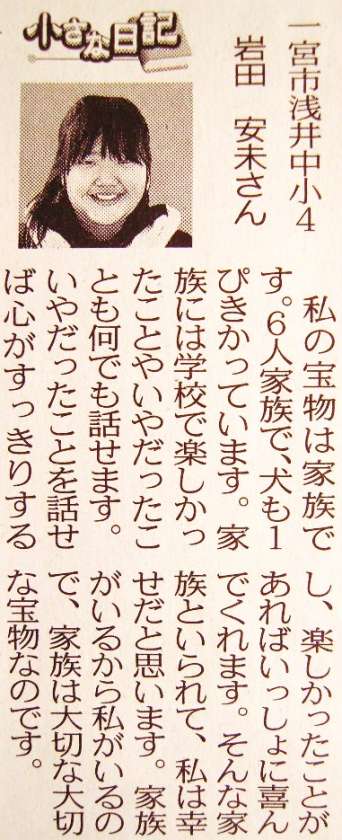 小さな日記
一宮市浅井中小4
岩田 安未さん
私の宝物は家族で
す。6人家族で、犬も1
ぴきかっています。家
族には学校で楽しかっ
たことやいやだったこ
とも何でも話せます。
いやだったことを話せ
ば心がすっきりする
し、楽しかったことが
あればいっしょに喜ん
でくれます。そんな家
族といられて、私は幸
せだと思います。家族
がいるから私がいるの
で、家族は大切な大切
な宝物なのです。